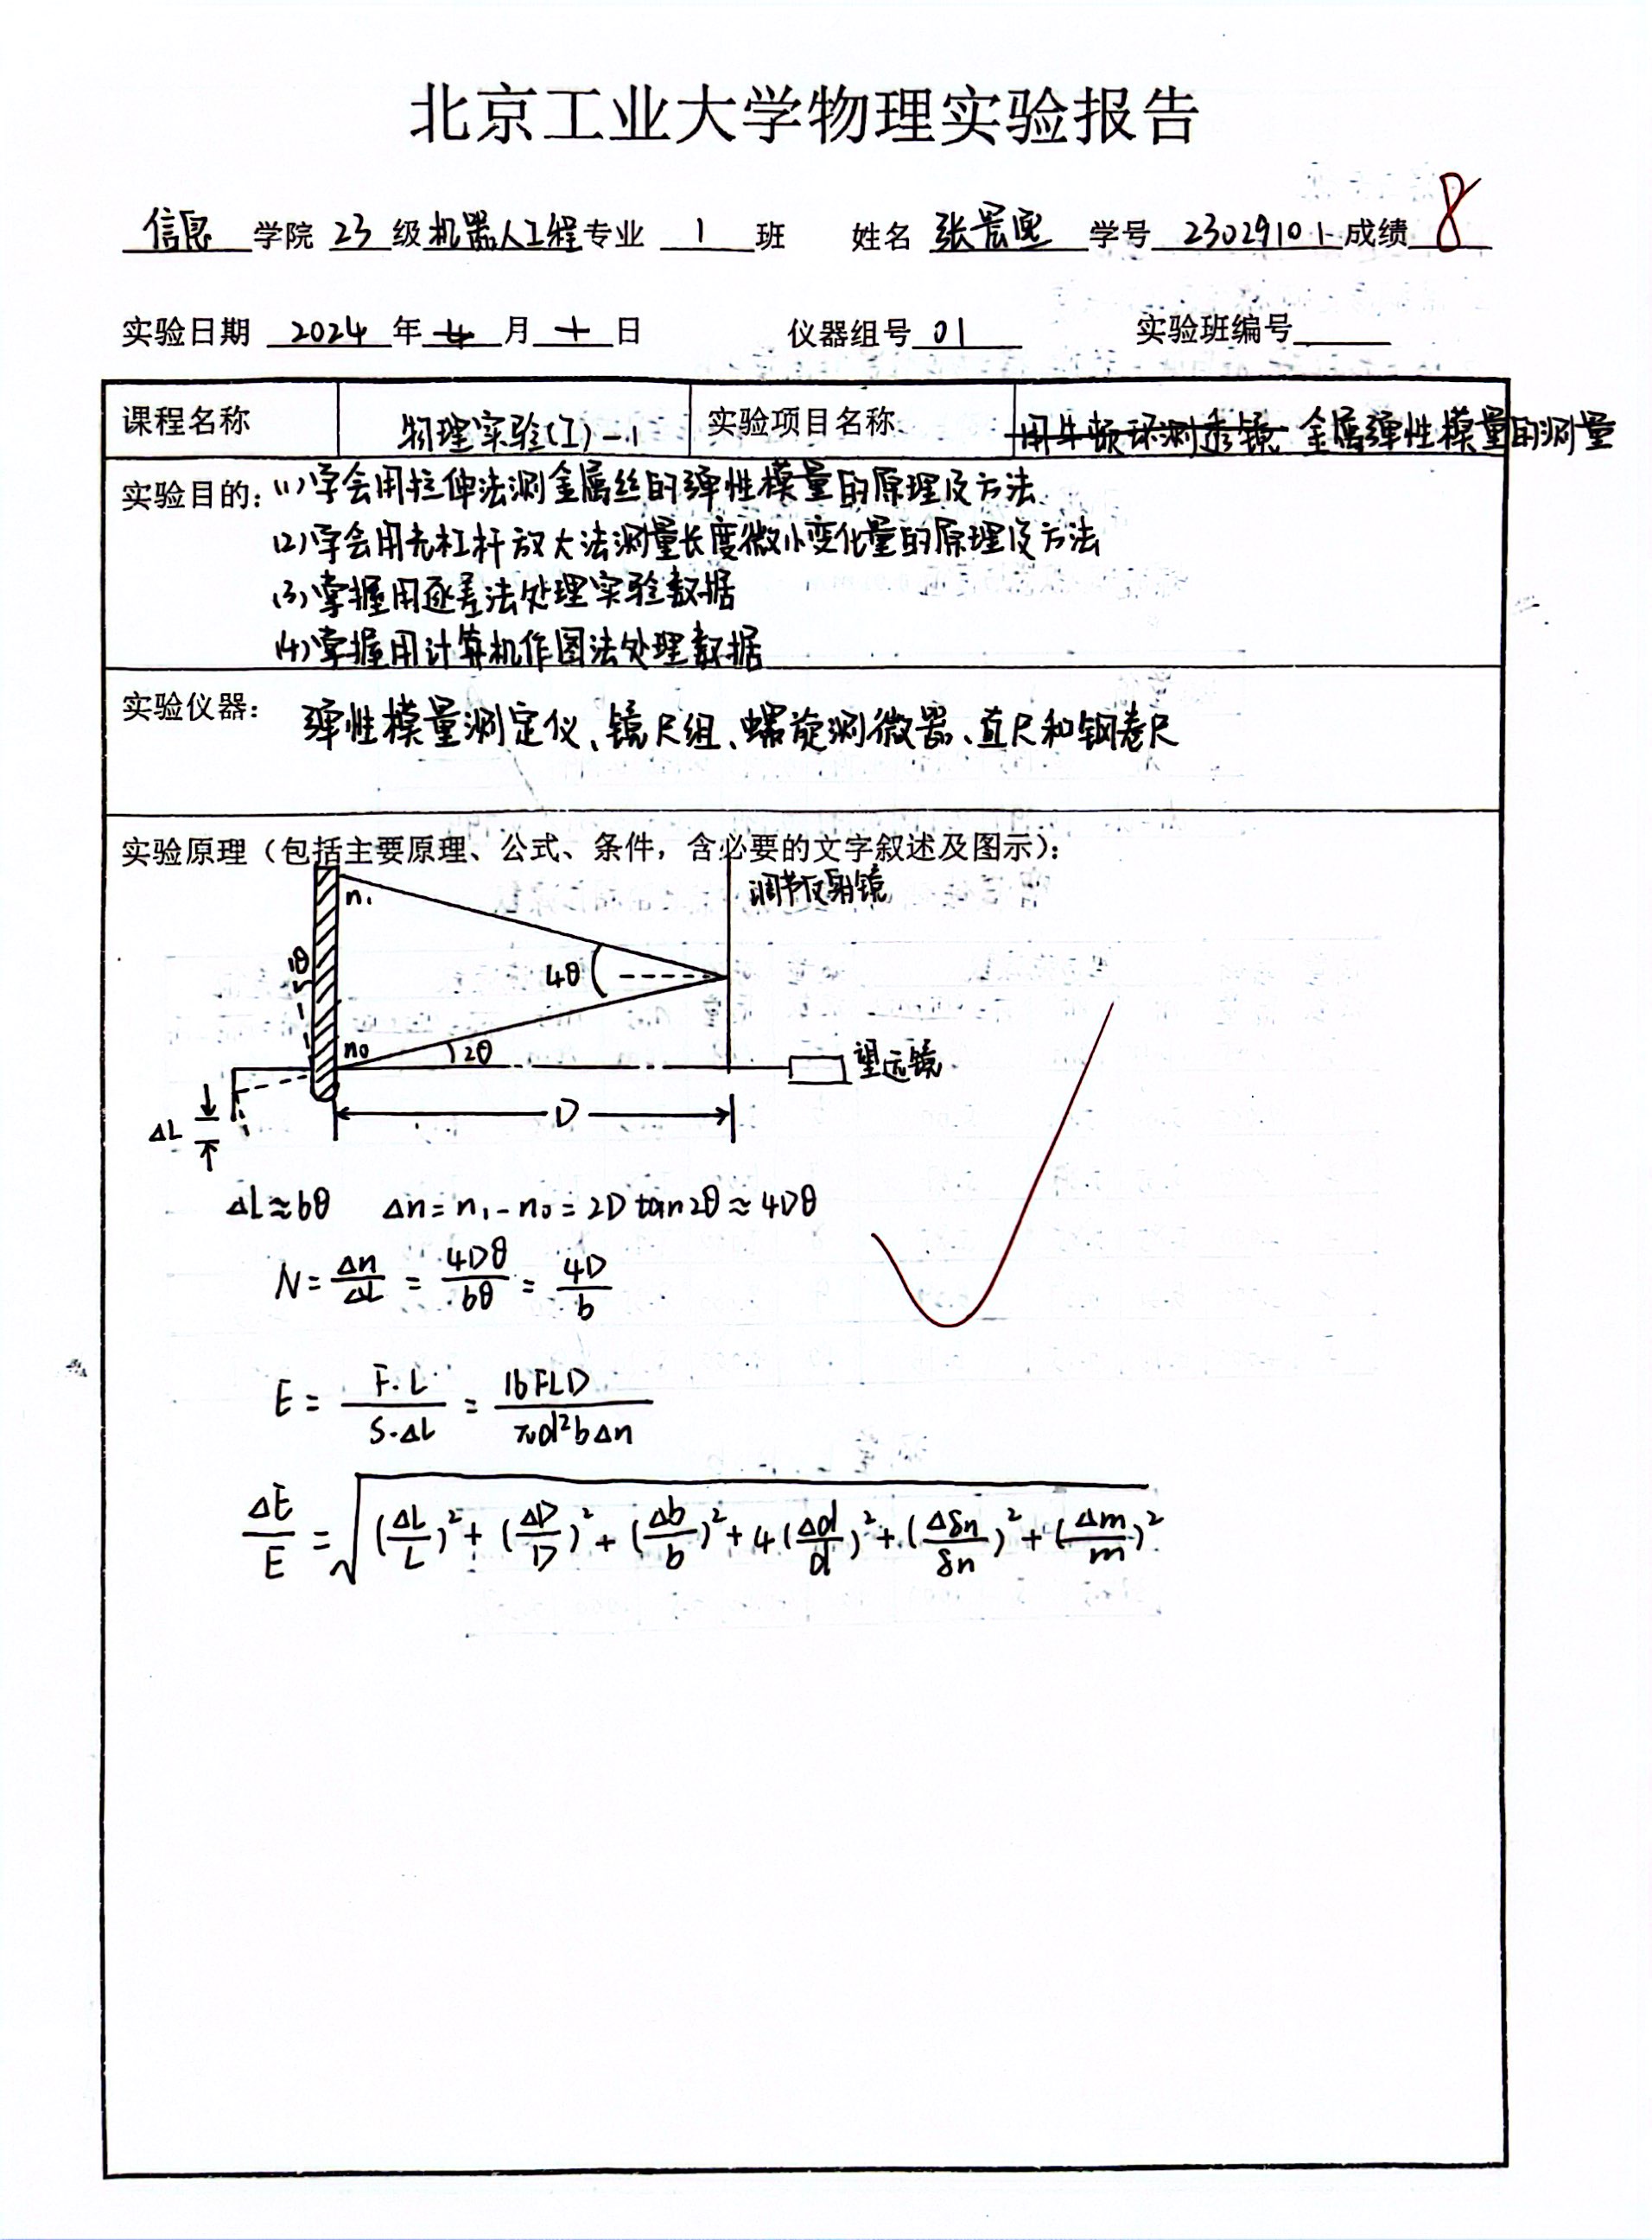 北京工业大学物理实验报告
信息 学院 23 级 机器人工程 专业 1 班 姓名 张宸熙 学号 23029101 成绩 8
实验日期 2024 年 4 月 1 日 仪器组号 01 实验班编号
课程名称 物理实验(I)-1 实验项目名称 用牛顿环测透镜 金属弹性模量的测量
实验目的：(1)学会用拉伸法测金属丝的弹性模量的原理及方法
(2)学会用光杠杆放大法测量长度微小变化量的原理及方法
(3)掌握用逐差法处理实验数据
(4)掌握用计算机作图法处理数据
实验仪器： 弹性模量测定仪、镜尺组、螺旋测微器、直尺和钢卷尺
实验原理（包括主要原理、公式、条件，含必要的文字叙述及图示）：
n₁ 调节反射镜
θ 4θ
n₀ 2θ 望远镜
ΔL D
ΔL≈bθ Δn=n₁-n₀=2D tan2θ≈4Dθ
N=Δn/ΔL=4Dθ/bθ=4D/b
E=F·L/S·ΔL=16FLD/πd²bΔn
ΔE/E=√(ΔL/L)²+(ΔD/D)²+(Δb/b)²+4(Δd/d)²+(Δδn/δn)²+(Δm/m)²